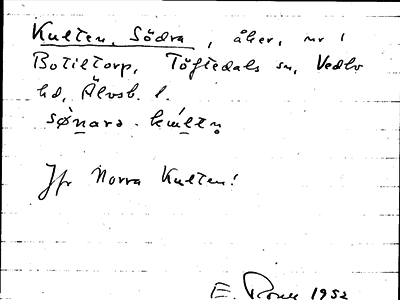 Kulten, Södra, åker, nr 1
Botiltorp, Töftedals sn, Vedbo
hd, Älvsb. l.
Jfr Norra Kulten!
E. 1952